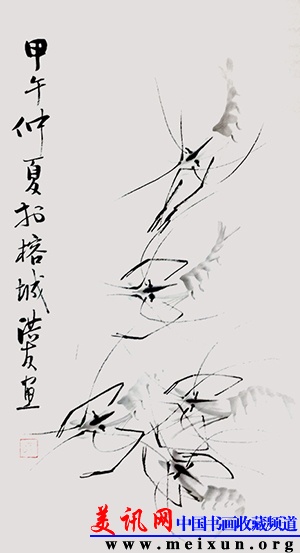 甲午仲夏於榕城洪友画
美讯网 中国书画收藏频道
www.meixun.org